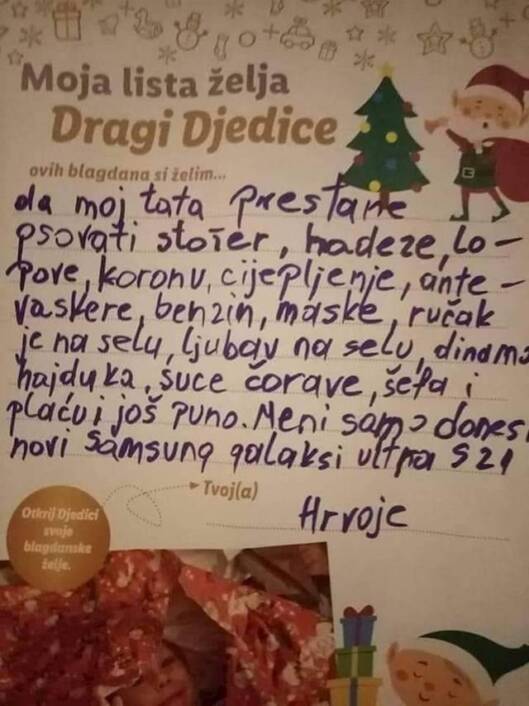 Moja lista želja
Dragi Djedice
ovih blagdana si želim...
da moj tata prestane
psovati stožer, hadeze, lo-
pove, koronu, cijepljenje, ante-
vaskere, benzin, maske, ručak
je na selu, ljubav na selu, dinamo
hajduka, suce ćorave, šefa i
plaću i još puno. Meni samo donesi
novi Samsung galaksi ultra S21
Tvoj(a)
Hrvoje
Otkrij Djedici
svoje
blagdanske
želje.